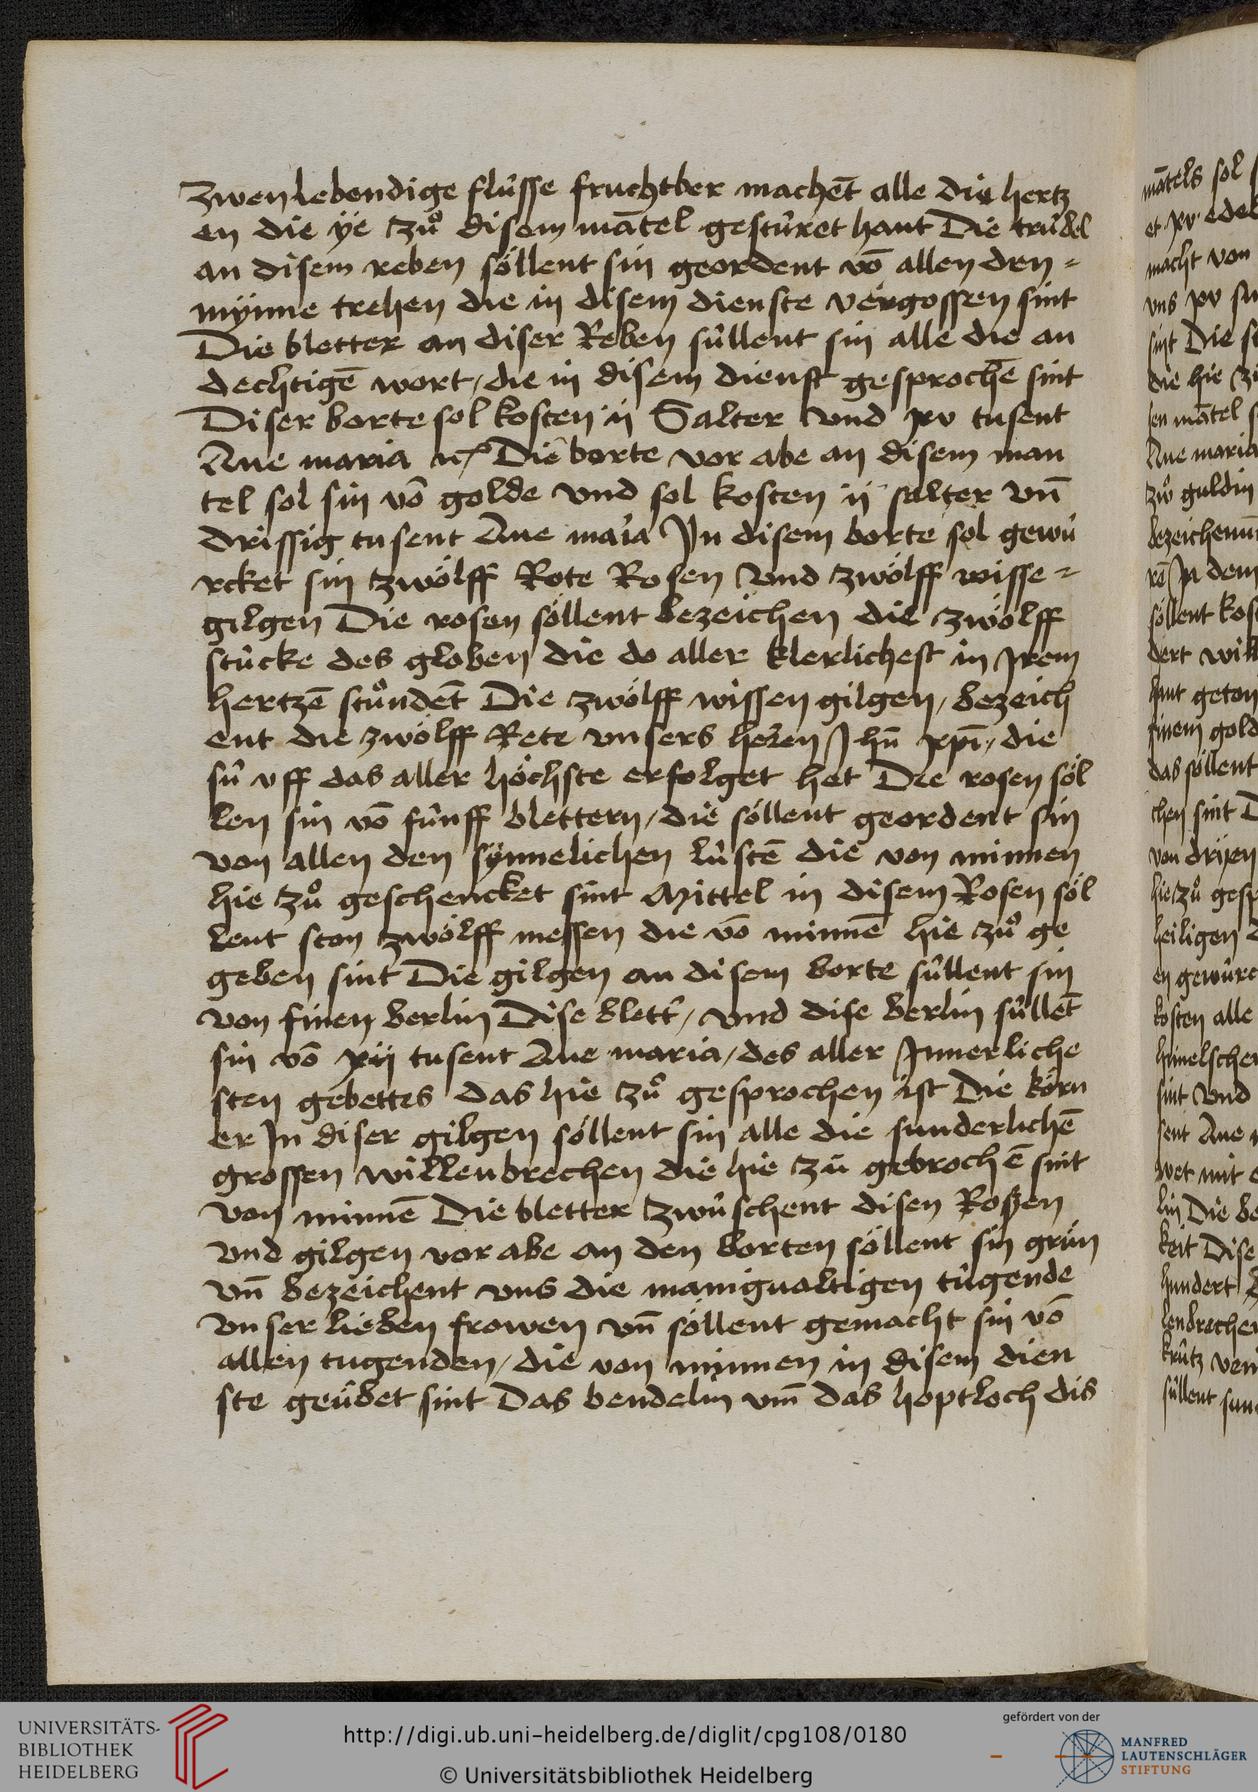 zwen lebendige flu̍sse fruchtber machent̄ alle die hertz
en die ye zuͦ disem mātel gestu̍ret hant Die tru̍del
an disem reben söllent sin geordent vō allen den =
mynne trehen die in disem dienste vergossen sint
Die bletter an diser Reben su̍llent sin alle die an
dechtigē wort / die in disem dienst gesprochē sint
Diser borte sol kosten ij Salter vnd xv tusent
Aue maria Die borte vor abe an disem man
tel sol sin vō golde vnd sol kosten ij salter vn̄
drissig tusent Aue maīa Jn disem borte sol gewu̍
rcket sin zwölff Rote Rosen Vnd zwölff wisse =
gilgen Die rosen söllent bezeichen die zwölff
stu̍cke des globen die do aller klerlichest in Jrem
hertzē stuͦndēt Die zwölff wissen gilgen / bezeich
ent die zwölff Rete vnsers herren Jhū xp̄i / die
su̍ vff das aller höchste erfolget het Die rosen söl
len sin vō fu̍nff blettern / die söllent geordent sin
von allen den synnelichen lu̍stē die von minnen
hie zuͦ geschencket sint Mittel in disem Rosen söl
lent ston zwölff messen die vō minnē hie zuͦ ge
geben sint Die gilgen an disem borte su̍llent sin
von finen berlin Dise blett' / vnd dise berlin su̍llēt
sin vō xij tusent Aue maria / des aller Jnnerliche
sten gebettes das hie zuͦ gesprochen ist Die körn
er Jn diser gilgen söllent sin alle die sunderlichē
grossen willenbrechen die hie zu̍ gebrochē sint
von minnē Die bletter zwu̍schent disen Rosen
vnd gilgen vor abe an den borten söllent sin gru̍n
vn̄ bezeichent vns die manigualtigen tu̍gende
vnser lieben frowen vn̄ söllent gemacht sin vō
allen tugenden / die von minnen in disem dien
ste geu̍bet sint Das bendelin vm̄ das hoptloch dis
mātels sol
macht von
sint Die
die hie
en mātel
Aue maria
zwo guldin
Jn dem
söllent
geton
das söllent
chen sint
von drijen
hie zuͦ
heiligen
kosten alle
sint vnd
sent Aue
mit
lin Die
keit Dise
hundert
su̍llent
UNIVERSITÄTS-
BIBLIOTHEK
HEIDELBERG
http://digi.ub.uni-heidelberg.de/diglit/cpg108/0180
© Universitätsbibliothek Heidelberg
gefördert von der
MANFRED
LAUTENSCHLÄGER
STIFTUNG